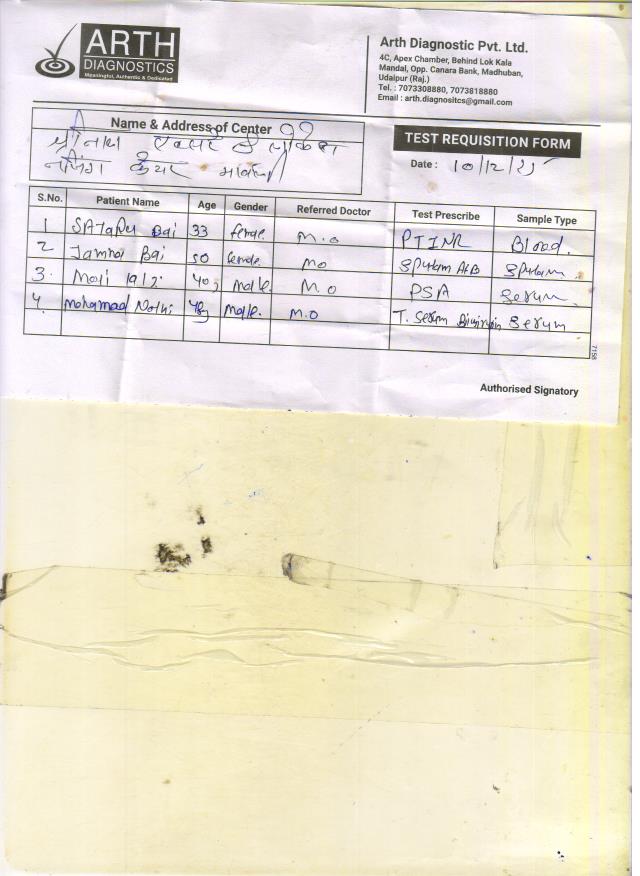 ARTH
DIAGNOSTICS
Meaningful, Authentic & Dedicated
Arth Diagnostic Pvt. Ltd.
4C, Apex Chamber, Behind Lok Kala
Mandal, Opp. Canara Bank, Madhuban,
Udaipur (Raj.)
Tel. : 7073308880, 7073818880
Email : arth.diagnositcs@gmail.com
Name & Address of Center
श्री नाथ
TEST REQUISITION FORM
Date : 10/12/25
S.No. Patient Name Age Gender Referred Doctor Test Prescribe Sample Type
1 Bai 33 female M.O PTINR Blood.
2 Bai 50 female MO Sputum AFB Sputum
3. 40 male. M.O PSA Serum
4. Mohamad male. M.O T. Serum Serum
7158
Authorised Signatory